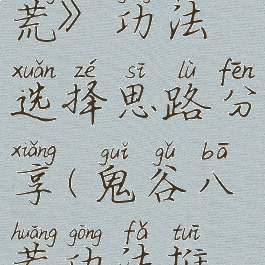 荒》功法
xuǎn zé sī lù fēn
选择思路分
xiǎng guǐ gǔ bā
享(鬼谷八
huāng gōng fǎ tuī
荒功法推